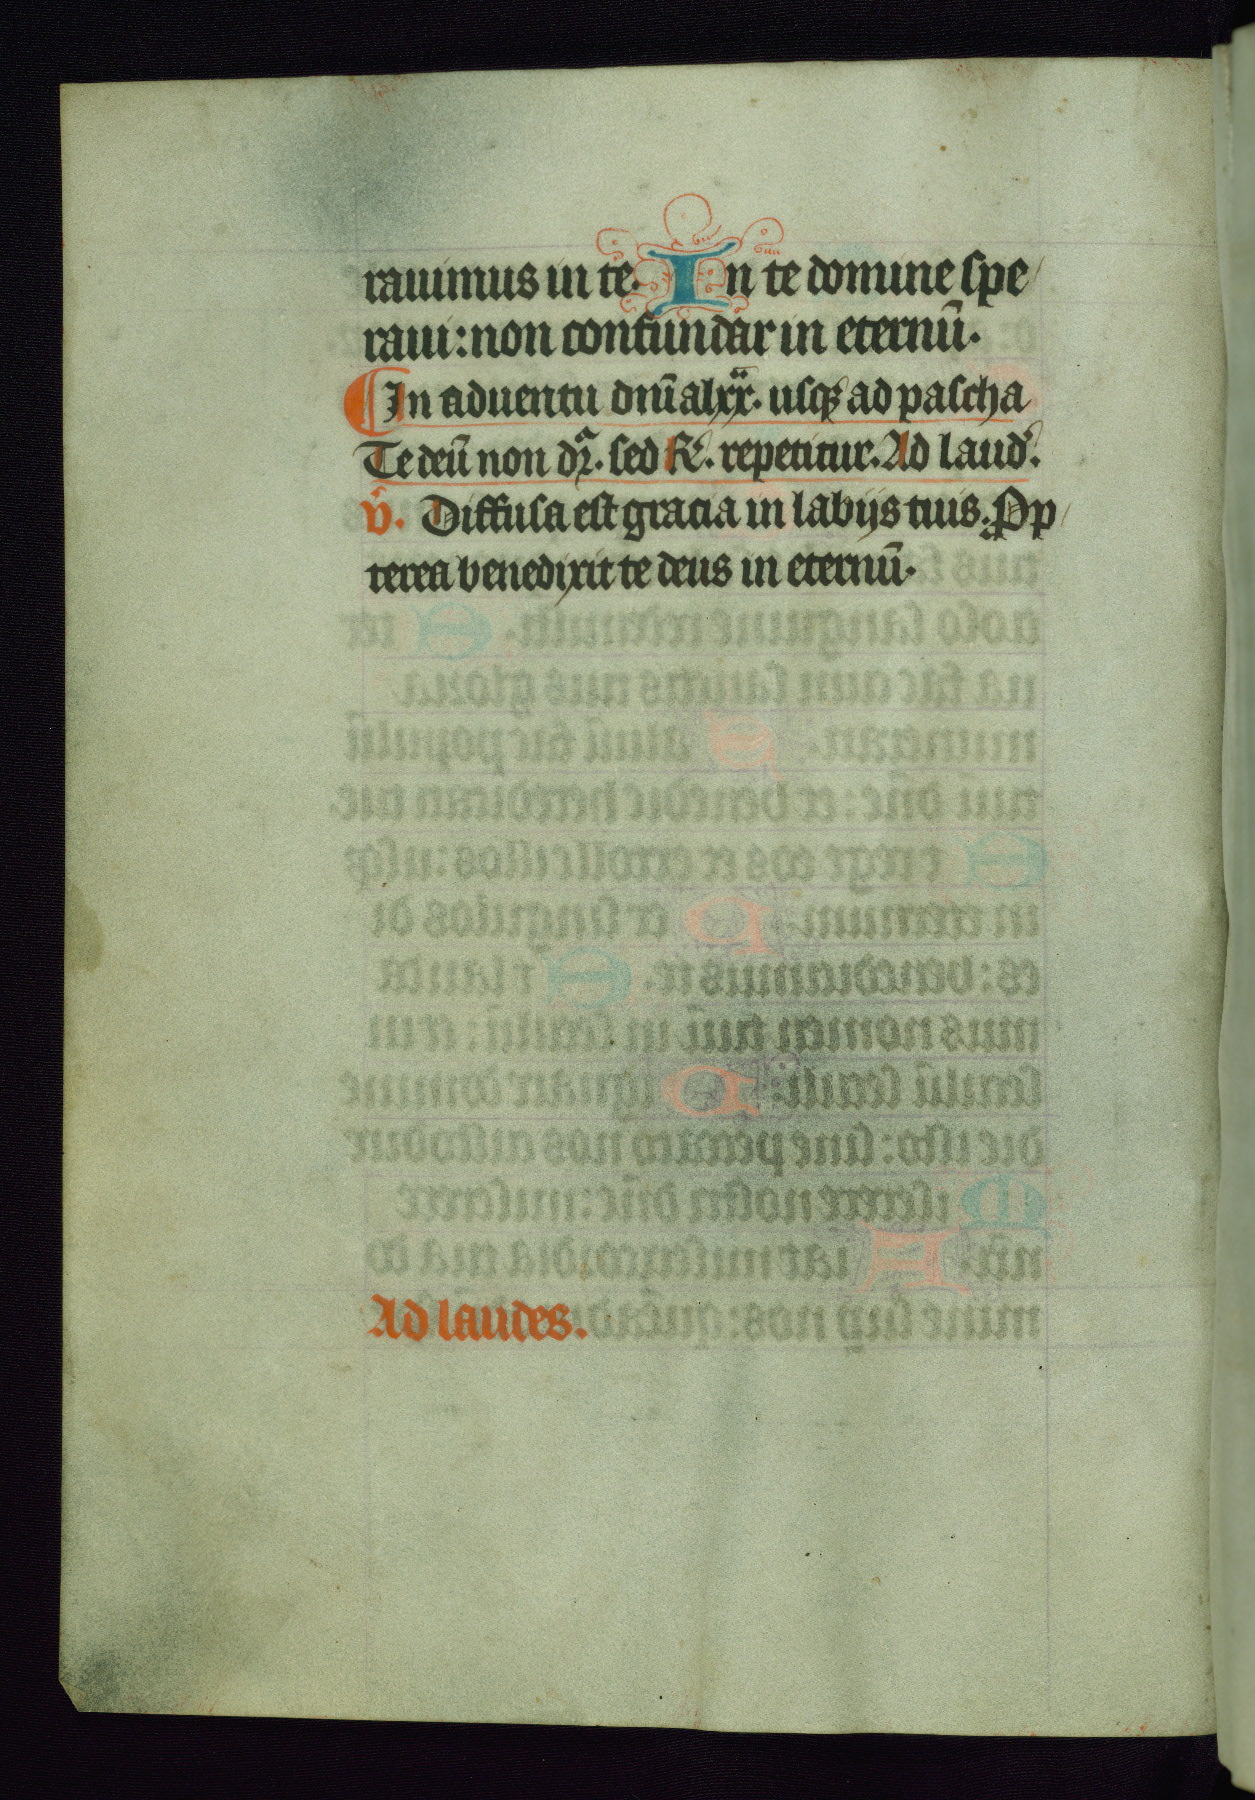 rauimus in te. In te domine spe
raui: non confundar in eternū.
In aduentu dm̄ alxx. usqꝫ ad pascha
Te deū non dr̄. sed R̄. repetitur. Ad laud̾.
v̂. Diffusa est gracia in labijs tuis. Ꝓp
terea benedixit te deus in eternū.
Ad laudes.